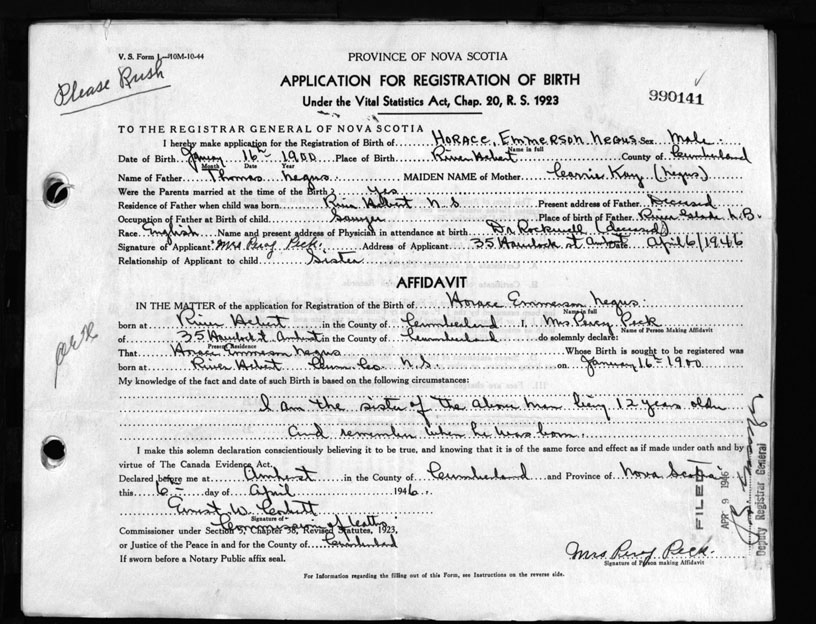 V. S. Form 1—10M-10-44
PROVINCE OF NOVA SCOTIA
Please Rush
APPLICATION FOR REGISTRATION OF BIRTH
990141
Under the Vital Statistics Act, Chap. 20, R. S. 1923
TO THE REGISTRAR GENERAL OF NOVA SCOTIA
I hereby make application for the Registration of Birth of Horace Emmerson Negus Sex Male
Name in full
Date of Birth January 16th 1900 Place of Birth River Hebert County of Cumberland
Month Date Year
Name of Father Thomas Negus MAIDEN NAME of Mother Carrie Kay (Negus)
Were the Parents married at the time of the Birth? Yes
Residence of Father when child was born River Hebert N.S. Present address of Father Deceased
Occupation of Father at Birth of child Sawyer Place of birth of Father River Glade N.B.
Race English Name and present address of Physician in attendance at birth Dr Rockwell (deceased)
Signature of Applicant Mrs Percy Peck Address of Applicant 35 Havelock st Amherst Date April 6/1946
Relationship of Applicant to child Sister
AFFIDAVIT
IN THE MATTER of the application for Registration of the Birth of Horace Emmerson Negus
Name in full
born at River Hebert in the County of Cumberland I, Mrs. Percy Peck
Name of Person Making Affidavit
of 35 Havelock st. Amherst in the County of Cumberland do solemnly declare:
Present Residence
That Horace Emmerson Negus Whose Birth is sought to be registered was
born at River Hebert Cum. Co. N.S. on January 16th 1900
My knowledge of the fact and date of such Birth is based on the following circumstances:
I am the sister of the above man being 12 years older
and remember when he was born.
I make this solemn declaration conscientiously believing it to be true, and knowing that it is of the same force and effect as if made under oath and by
virtue of The Canada Evidence Act.
Declared before me at Amherst in the County of Cumberland and Province of Nova Scotia
this 6th day of April 1946.
Ernest W.
Signature of
Commissioner under Section 5, Chapter 38, Revised Statutes, 1923,
or Justice of the Peace in and for the County of Cumberland
If sworn before a Notary Public affix seal.
Mrs Percy Peck
Signature of Person making Affidavit
FILED
APR 9 1946
Deputy Registrar General
For Information regarding the filling out of this Form, see Instructions on the reverse side.